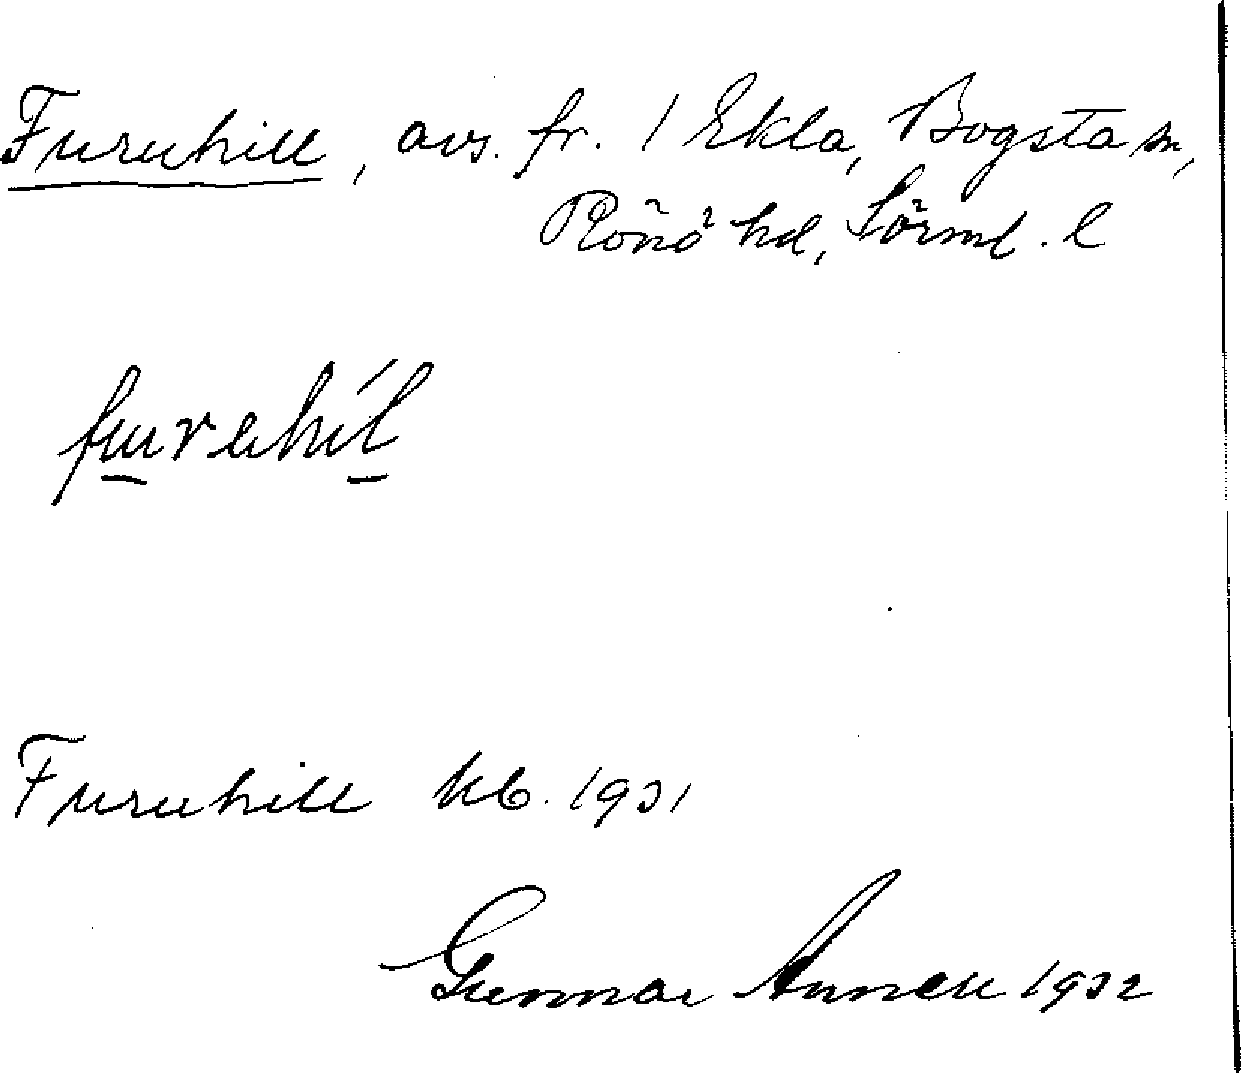 Furuhill, avs. fr. 1 Ekla, Bogsta sn,
Rönö hd, Sörml. l
furuhíl
Furuhill kb. 1931
Gunnar 1932